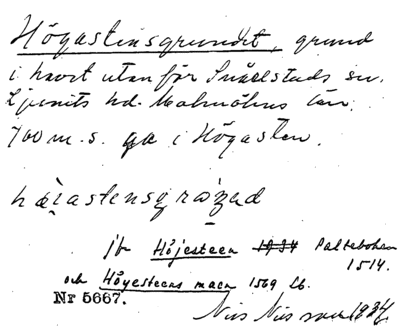 Högastensgrundet, grund
i havet utanför Smälstads sn.
Ljunits hd. Malmöhus län.
700 m. s. ga i Högasten.
hastensgrazed
jfr Höjesteen 1934 Paltebohen
1514.
och Höyesteens maen 1569 Lb.
Nr 5667.
Nils Nilsson 1934.